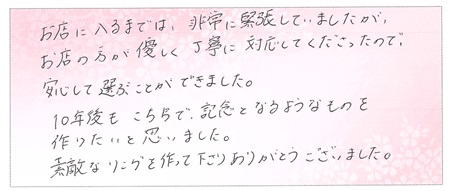 お店に入るまでは、非常に緊張していましたが、
お店の方が優しく丁寧に対応してくださったので、
安心して選ぶことができました。
10年後もこちらで、記念となるようなものを
作りたいと思いました。
素敵なリングを作って下さりありがとうございました。